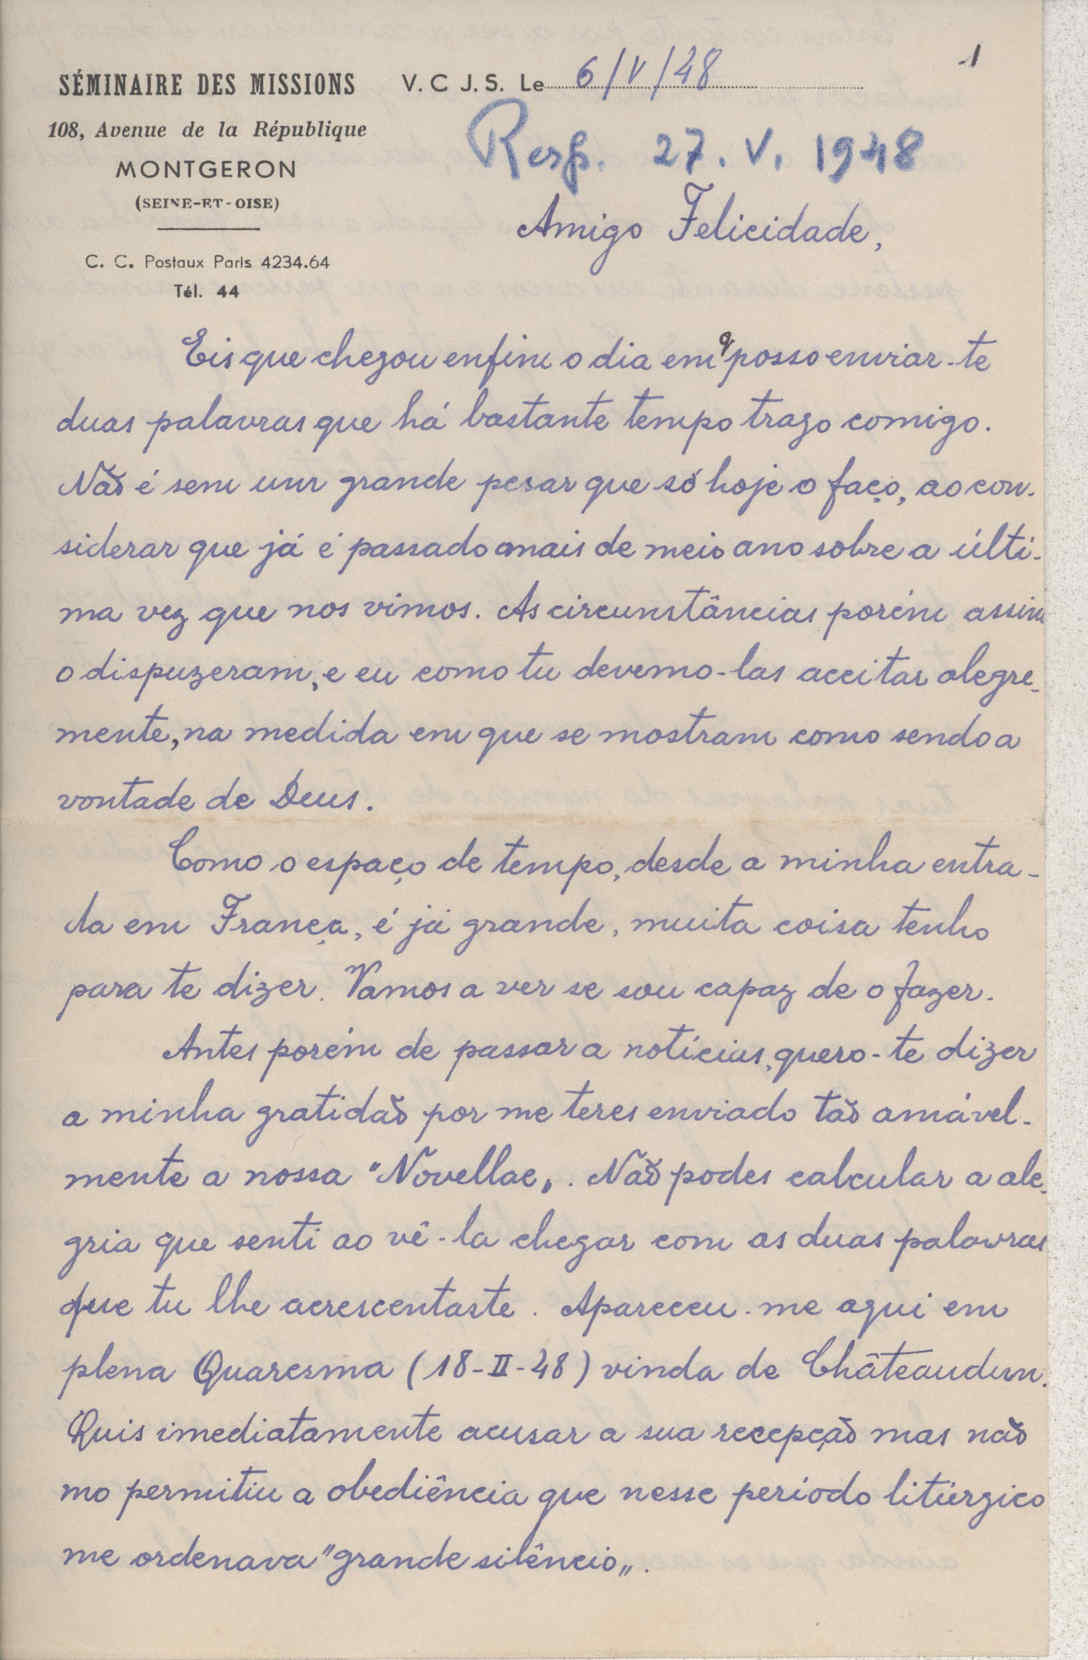 1
SÉMINAIRE DES MISSIONS
V. C J. S. Le 6/V/48
108, Avenue de la République
MONTGERON
(SEINE-ET-OISE)
C. C. Postaux Paris 4234.64
Tél. 44
Resp. 27. V. 1948
Amigo Felicidade,
Eis que chegou enfim o dia em q posso enviar-te
duas palavras que há bastante tempo trago comigo.
Não é sem um grande pesar que só hoje o faço, ao con-
siderar que já é passado mais de meio ano sobre a últi-
ma vez que nos vimos. As circunstâncias porém assim
o dispuzeram, e eu como tu devemo-las aceitar alegre-
mente, na medida em que se mostram como sendo a
vontade de Deus.
Como o espaço de tempo, desde a minha entra-
da em França, é já grande, muita coisa tenho
para te dizer. Vamos a ver se sou capaz de o fazer.
Antes porém de passar a notícias, quero-te dizer
a minha gratidão por me teres enviado tão amável-
mente a nossa "Novellae„. Não podes calcular a ale-
gria que senti ao vê-la chegar com as duas palavras
que tu lhe acrescentaste. Apareceu-me aqui em
plena Quaresma (18-II-48) vinda de Châteaudun.
Quis imediatamente acusar a sua recepção mas não
mo permitiu a obediência que nesse período litúrgico
me ordenava "grande silêncio„.